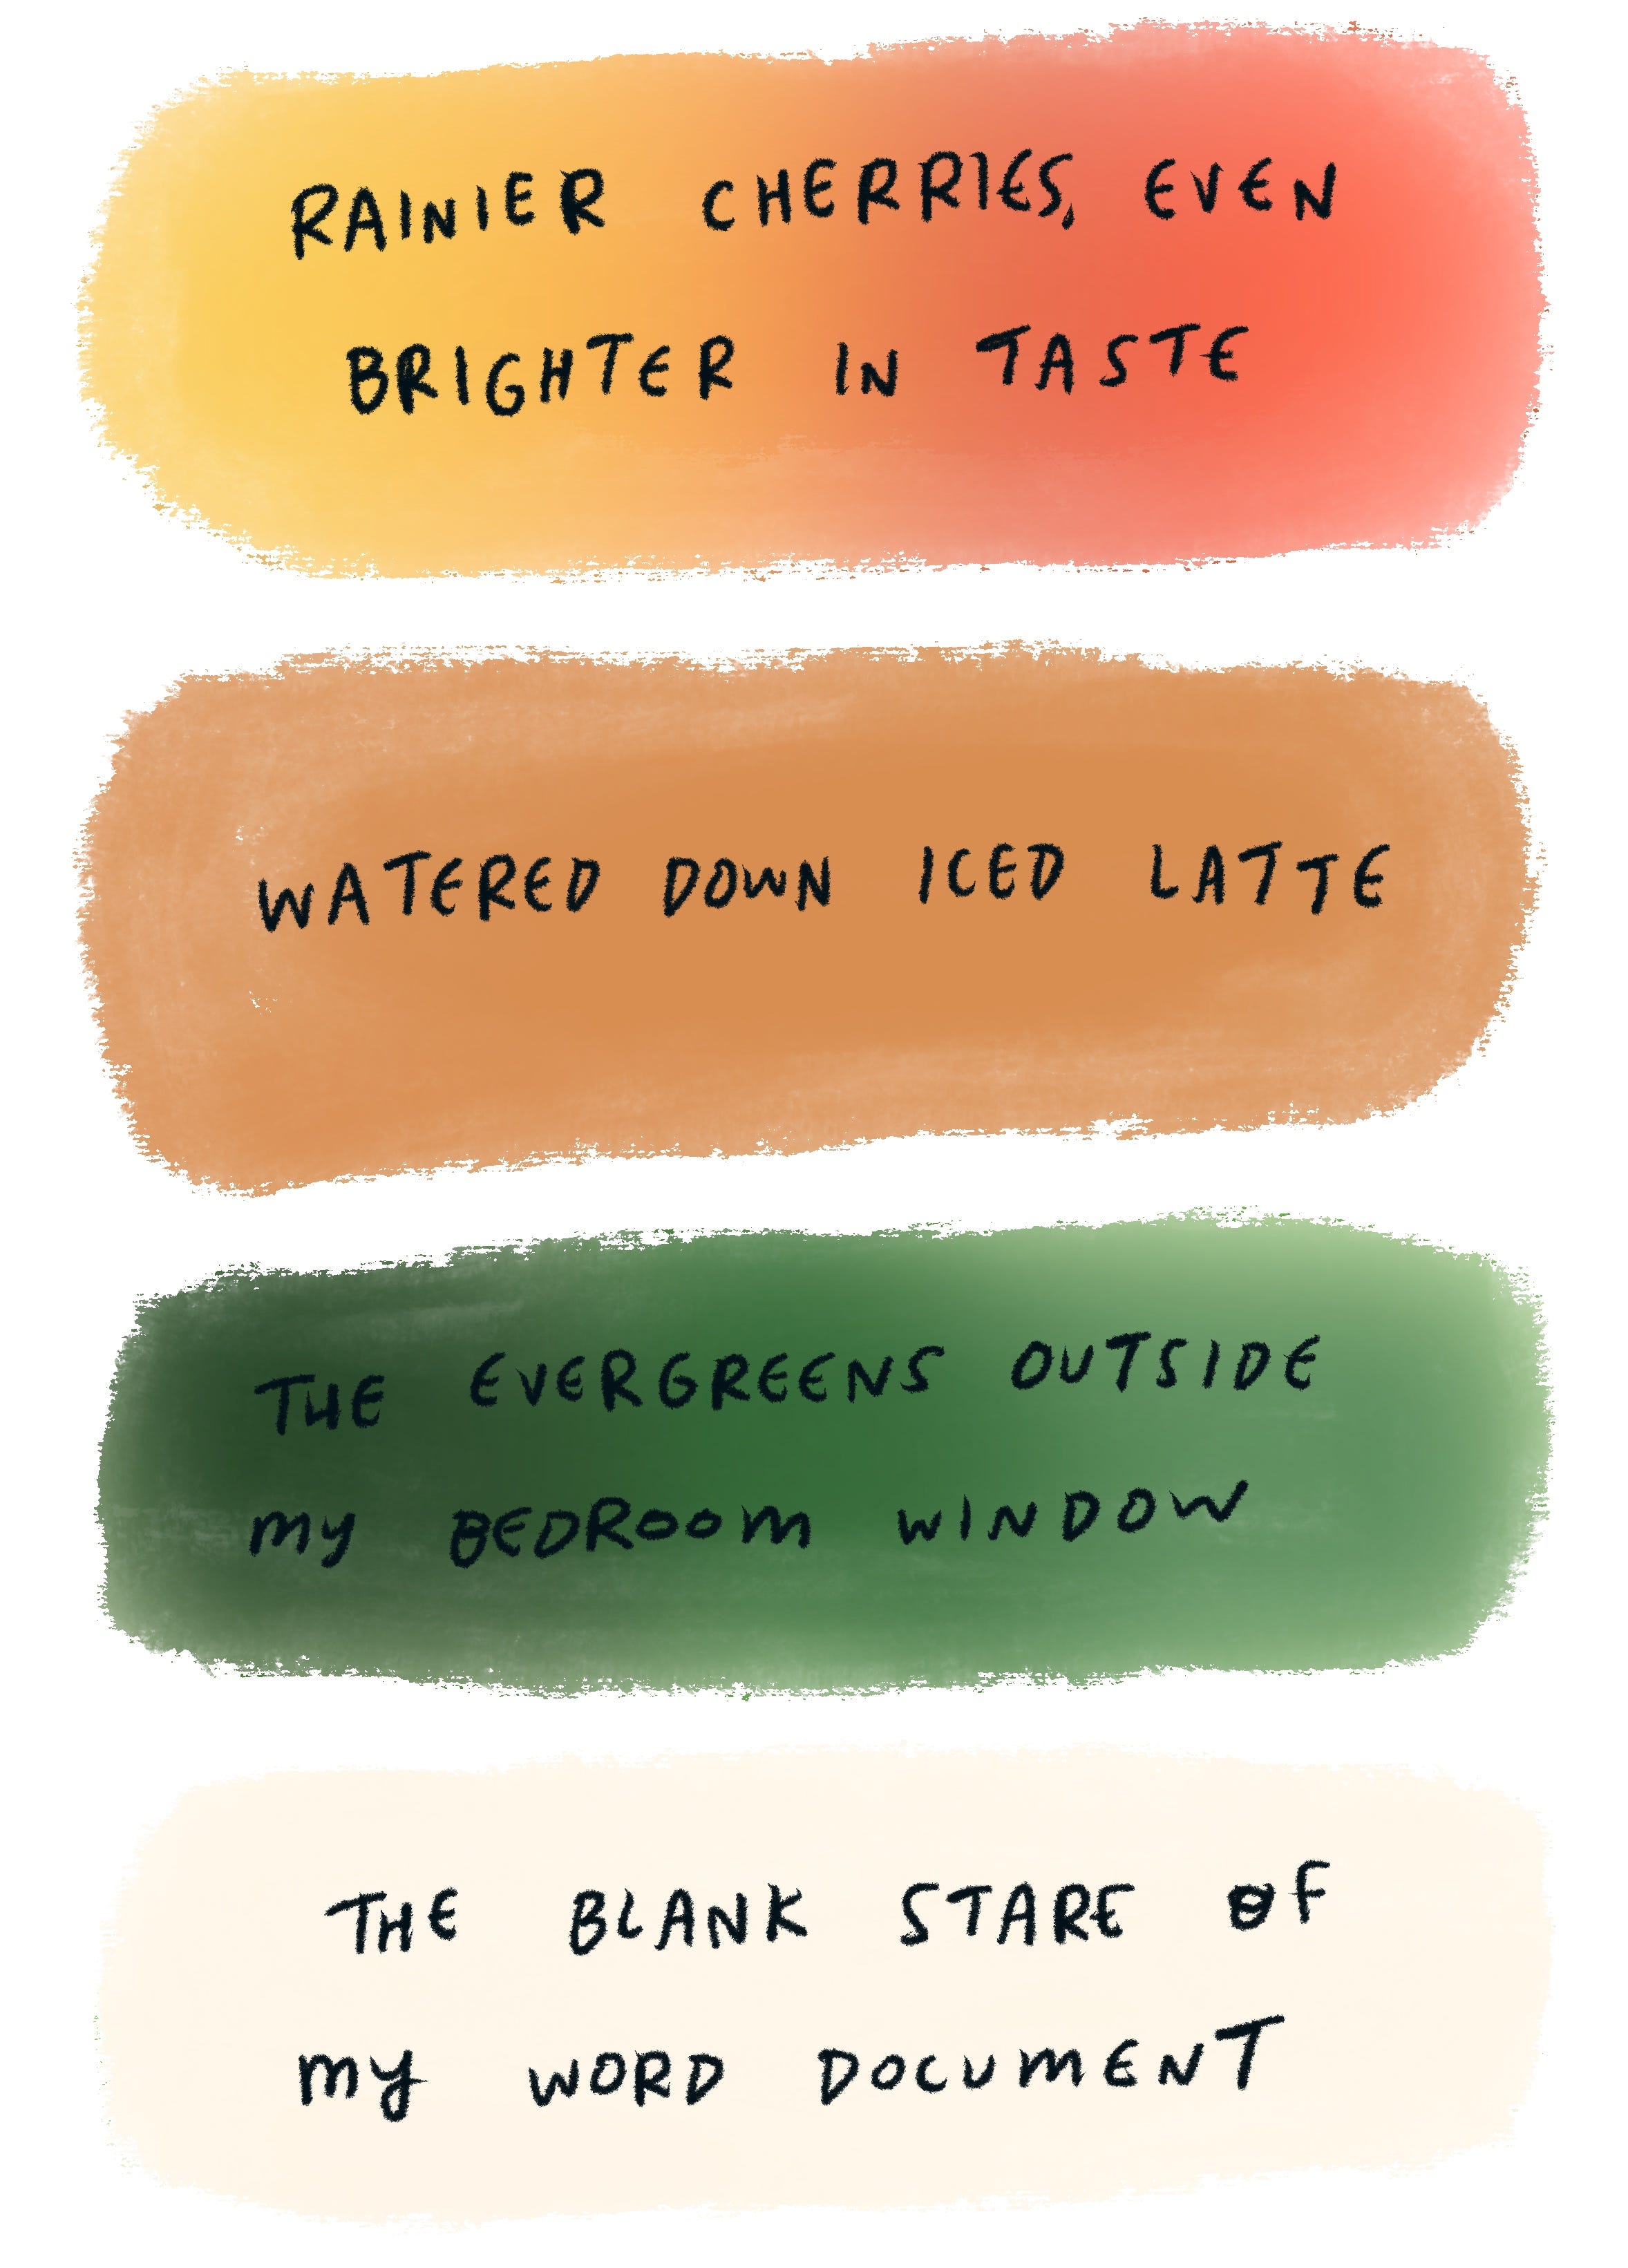 RAINIER CHERRIES, EVEN
BRIGHTER IN TASTE
WATERED DOWN ICED LATTE
THE EVERGREENS OUTSIDE
my BEDROOm WINDOW
THE BLANK STARE OF
my WORD DOCUmENT